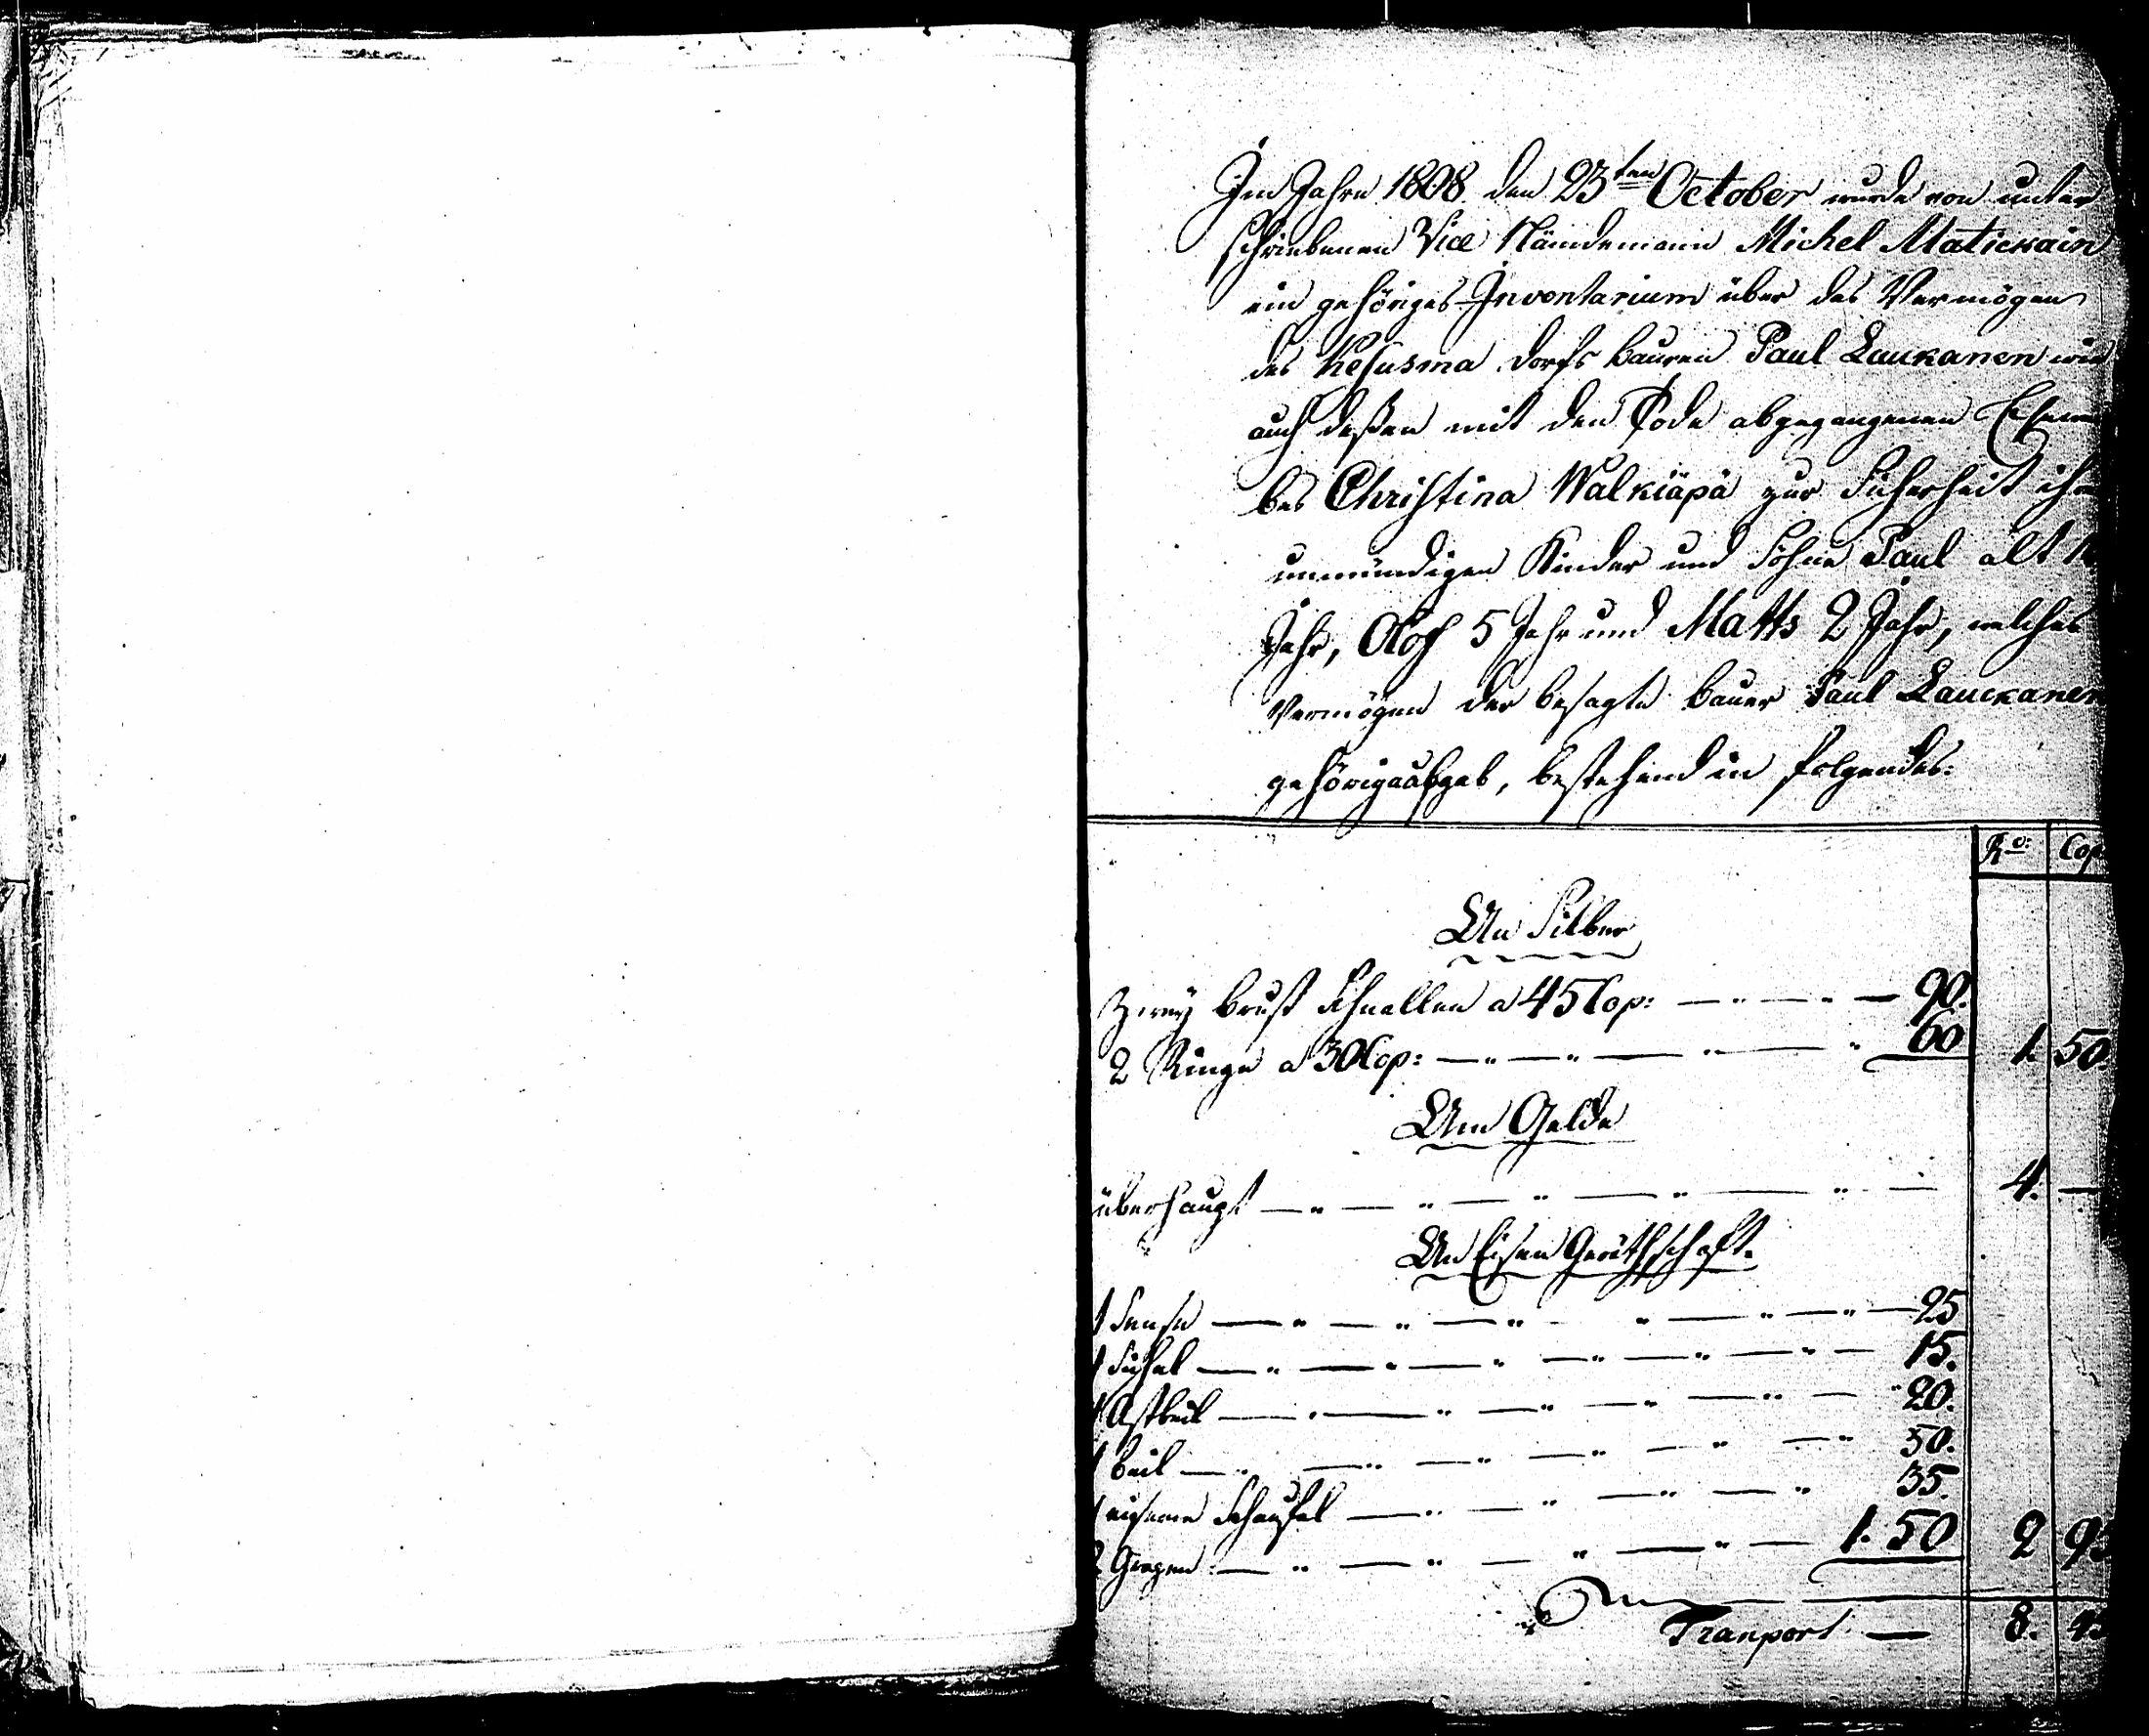 Im Jahre 1808. den 23ten October wurde von unter
schriebenen Vice Nämdemann Michel Matickain
ein gehöriges Inventarium über das Vermögen
des Kesusma dorfs bauren Paul Laukanen wie
auch deßen mit den Tode abgegangenen Ehewei
bes Christina Walkiäpä zur Sicherheit ihre
unmündigen Kinder und Söhne Paul alt
Jahr, Olof 5 Jahr und Matts 2 Jahr, welches
Vermögen der besagte bauer Paul Lauckanen
gehörig aufgab, bestehend in folgendes:
Ro: Cop
An Silber
Zwey brust Schnallen a 45 Cop: 90.
2 Ringe a 30 Cop: 60 1. 50.
Am Gelde
überhaupt 4. —
An Eisen Geräthschaft.
1 Sense 25
1 Sichel 15.
1 Astbeil 20.
1 beil 50.
1 eiserne Schaufel 35.
2 1. 50 2 95
Tranport — 8. 4